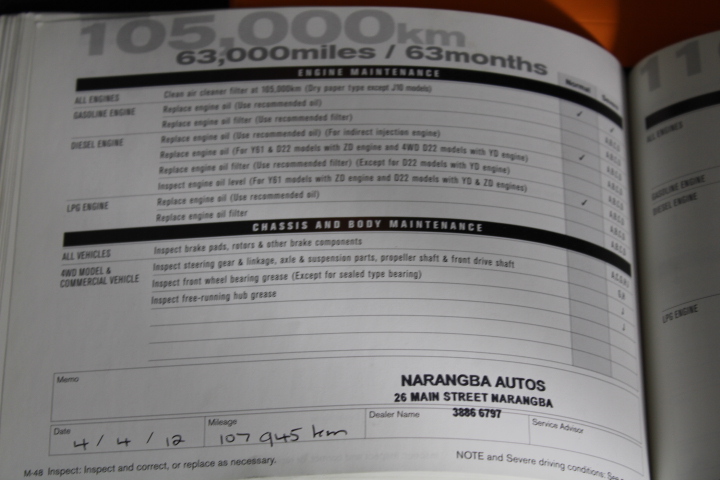 105,000km
63,000miles / 63months
ENGINE MAINTENANCE
Normal
ALL ENGINES Clean air cleaner filter at 105,000km (Dry paper type except J10 models)
GASOLINE ENGINE Replace engine oil (Use recommended oil) ✓
Replace engine oil filter (Use recommended filter)
DIESEL ENGINE Replace engine oil (Use recommended oil) (For indirect injection engine)
Replace engine oil (For Y61 & D22 models with ZD engine and 4WD D22 models with YD engine) ✓
Replace engine oil filter (Use recommended filter) (Except for D22 models with YD engine)
Inspect engine oil level (For Y61 models with ZD engine and D22 models with YD & ZD engines)
LPG ENGINE Replace engine oil (Use recommended oil) ✓
Replace engine oil filter
CHASSIS AND BODY MAINTENANCE
ALL VEHICLES Inspect brake pads, rotors & other brake components
4WD MODEL & COMMERCIAL VEHICLE Inspect steering gear & linkage, axle & suspension parts, propeller shaft & front drive shaft
Inspect front wheel bearing grease (Except for sealed type bearing)
Inspect free-running hub grease
Memo
NARANGBA AUTOS
26 MAIN STREET NARANGBA
3886 6797
Date 4/4/12
Mileage 107 945 km
Dealer Name
Service Advisor
M-48 Inspect: Inspect and correct, or replace as necessary.
NOTE and Severe driving conditions:
11
ALL ENGINES
GASOLINE ENGINE
DIESEL ENGINE
LPG ENGINE